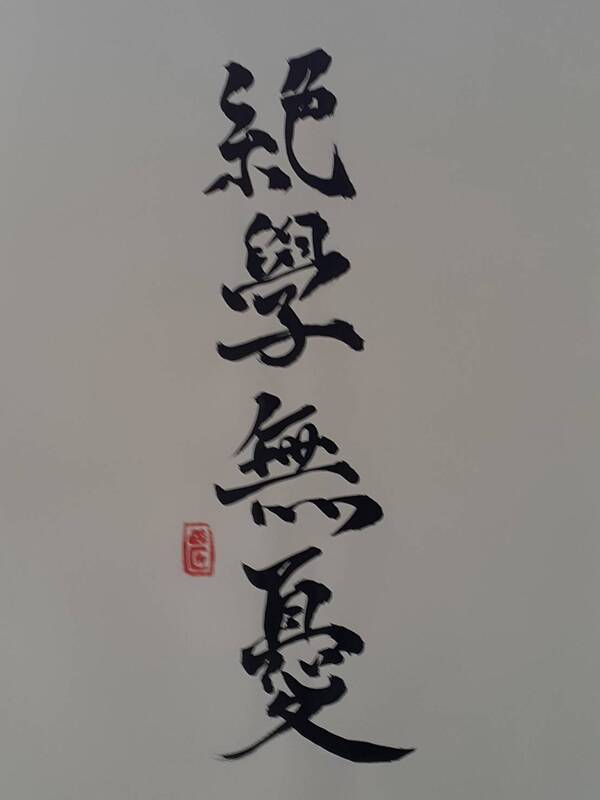 絕學無憂